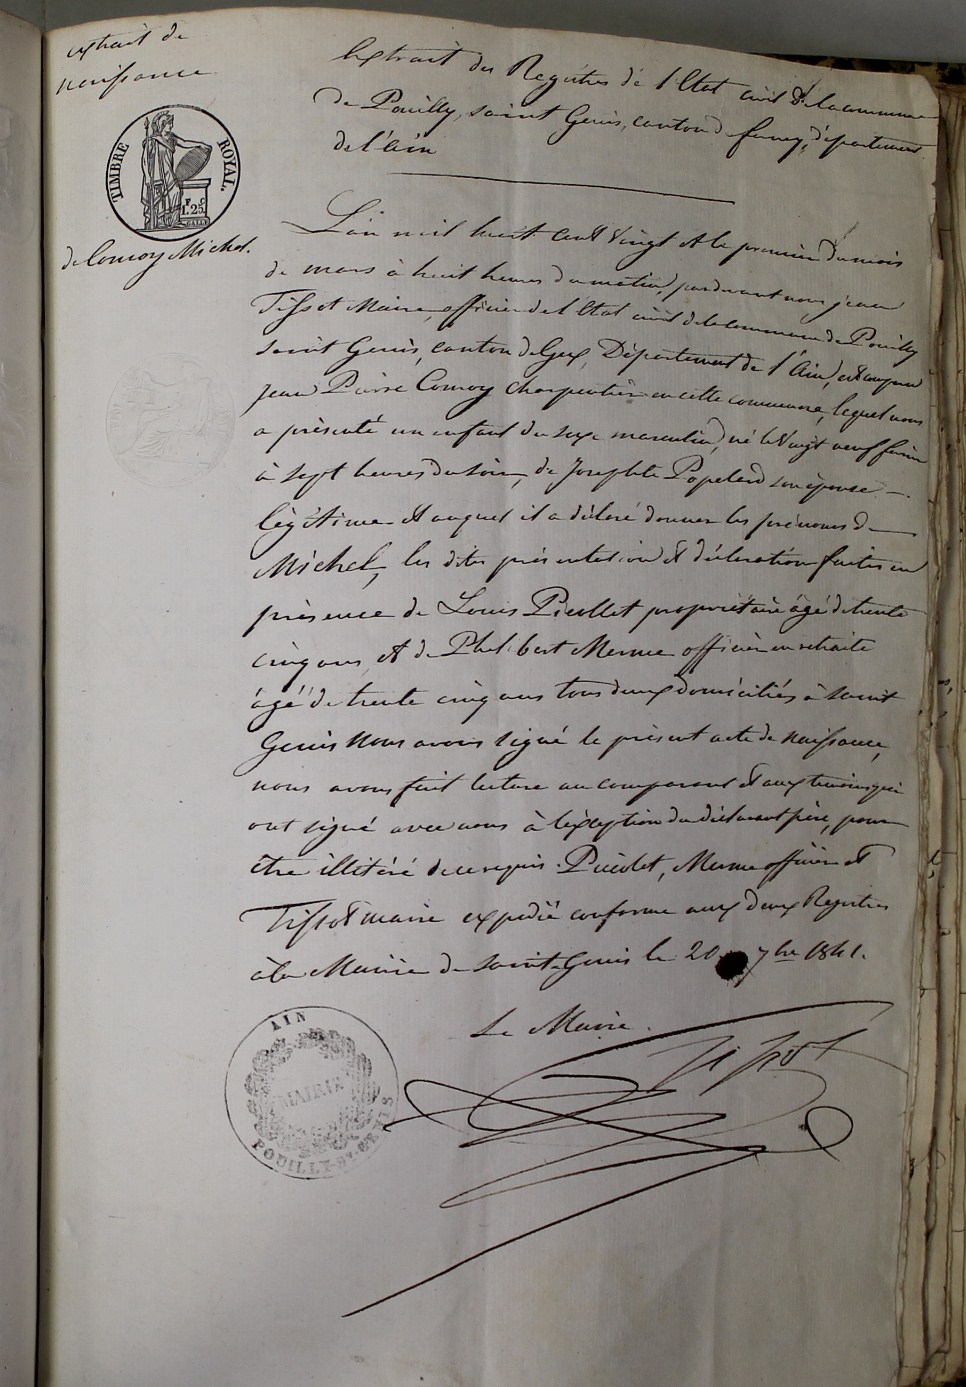 extrait de
naissance
TIMBRE ROYAL.
F. C.
1.25
de Comoy Michel.
Extrait des Registres de l'Etat civil de la commune
de Pouilly, saint Genis, canton de ferney, département
de l'ain
L'an mil huit cent vingt et le premier du mois
de mars à huit heures du matin, pardevant nous jean
Tissot Maire, officier de l'Etat civil de la commune de Pouilly
saint Genis, canton de Gex, Département de l'Ain, est comparu
jean Pierre Comoy charpentier en cette commune, lequel nous
a présenté un enfant du sexe masculin, né le vingt neuf février
à sept heures du soir, de Josephte Popeland son épouse
légitime et auquel il a déclaré donner les prénoms de
Michel, les dites présentation et déclaration faites en
présence de Louis Picollet propriétaire âgé de trente
cinq ans, et de Philibert Mermе officier en retraite
âgé de trente cinq ans tous deux domiciliés à saint
Genis nous avons signé le présent acte de naissance,
nous avons fait lecture au comparant et aux temoins qui
ont signé avec nous à l'éxception du déclarant père, pour
être illitéré de ce requis. Picolet, Merme officier et
Tissot maire expedié conforme aux deux Registres
à la Mairie de saint-Genis le 20 7bre 1841.
Le Maire.
Tissot
AIN
MAIRIE
POUILLY-ST-GENIS